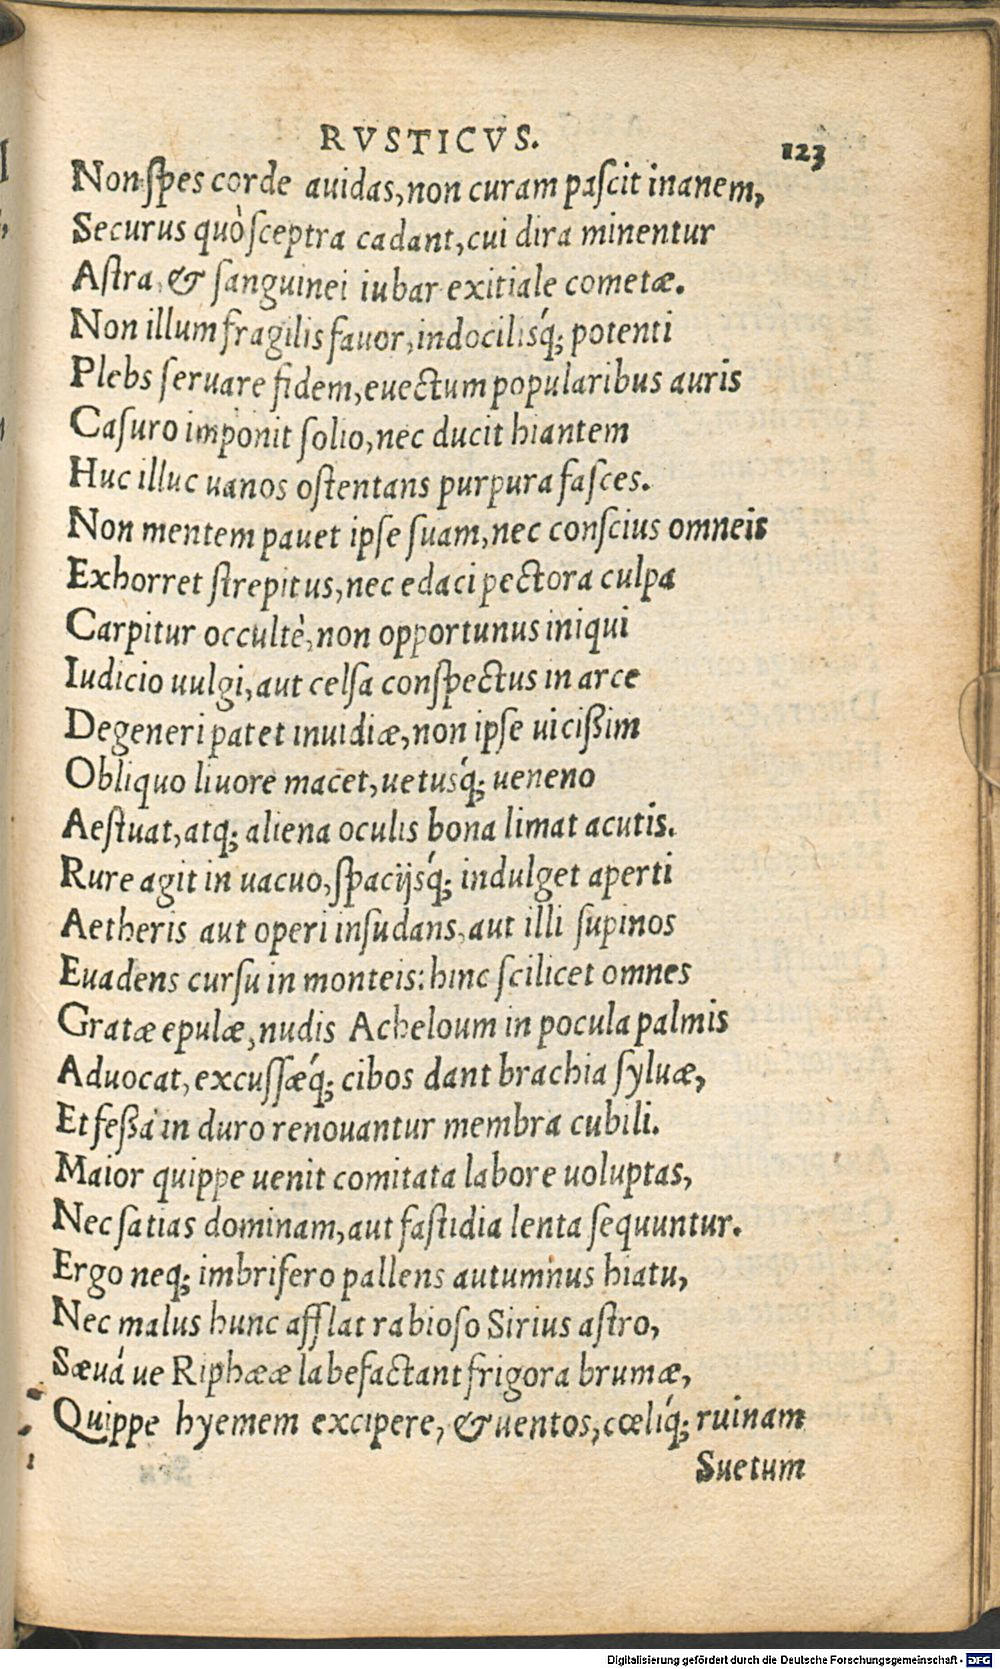 RVSTICVS. 123
Non spes corde auidas, non curam pascit inanem,
Securus quò sceptra cadant, cui dira minentur
Astra, & sanguinei iubar exitiale cometæ.
Non illum fragilis fauor, indocilisq́; potenti
Plebs seruare fidem, euectum popularibus auris
Casuro imponit solio, nec ducit hiantem
Huc illuc uanos ostentans purpura fasces.
Non mentem pauet ipse suam, nec conscius omneis
Exhorret strepitus, nec edaci pectora culpa
Carpitur occultè, non opportunus iniqui
Iudicio uulgi, aut celsa conspectus in arce
Degeneri patet inuidiæ, non ipse uicißim
Obliquo liuore macet, uetusq́; ueneno
Aestuat, atq; aliena oculis bona limat acutis.
Rure agit in uacuo, spacijsq́; indulget aperti
Aetheris aut operi insudans, aut illi supinos
Euadens cursu in monteis: hinc scilicet omnes
Gratæ epulæ, nudis Acheloum in pocula palmis
Aduocat, excussæq́; cibos dant brachia syluæ,
Et feßa in duro renouantur membra cubili.
Maior quippe uenit comitata labore uoluptas,
Nec satias dominam, aut fastidia lenta sequuntur.
Ergo neq; imbrifero pallens autumnus hiatu,
Nec malus hunc afflat rabioso Sirius astro,
Sæuá ue Riphææ labefactant frigora brumæ,
Quippe hyemem excipere, & uentos, cœliq́; ruinam
Suetum
Digitalisierung gefördert durch die Deutsche Forschungsgemeinschaft - DFG